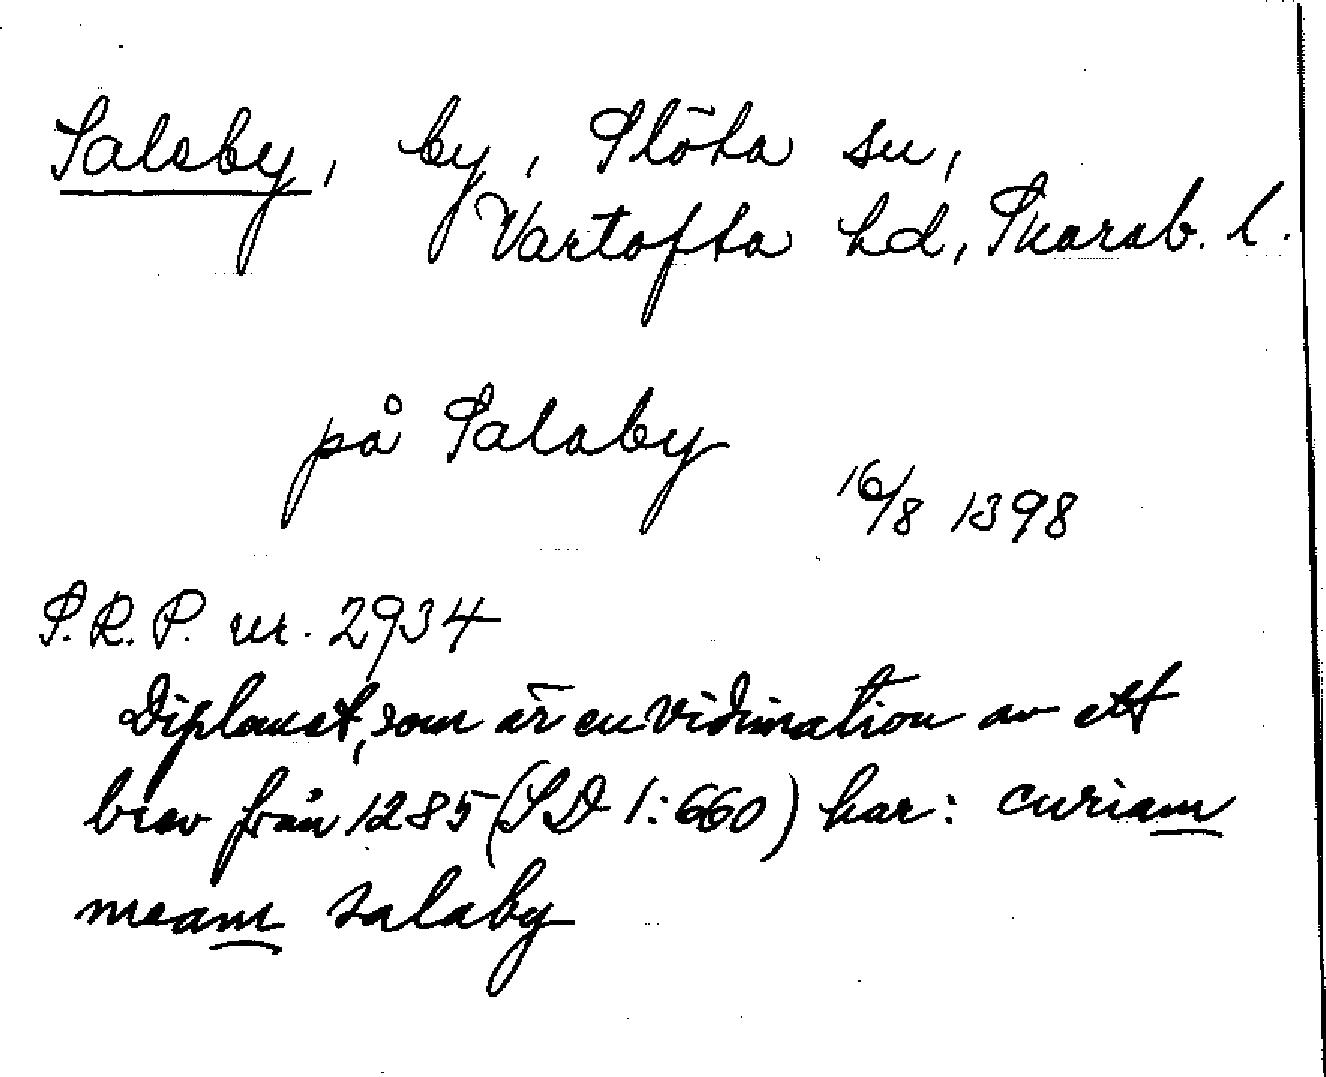 Saleby, by, Slöta sn,
Vartofta hd, Skarab. l.
på Salaby
16/8 1398
S.R.P. nr. 2934
Diplomet, som är en vidimation av ett
brev från 1285 (SD 1:660) har: curiam
meam salaby